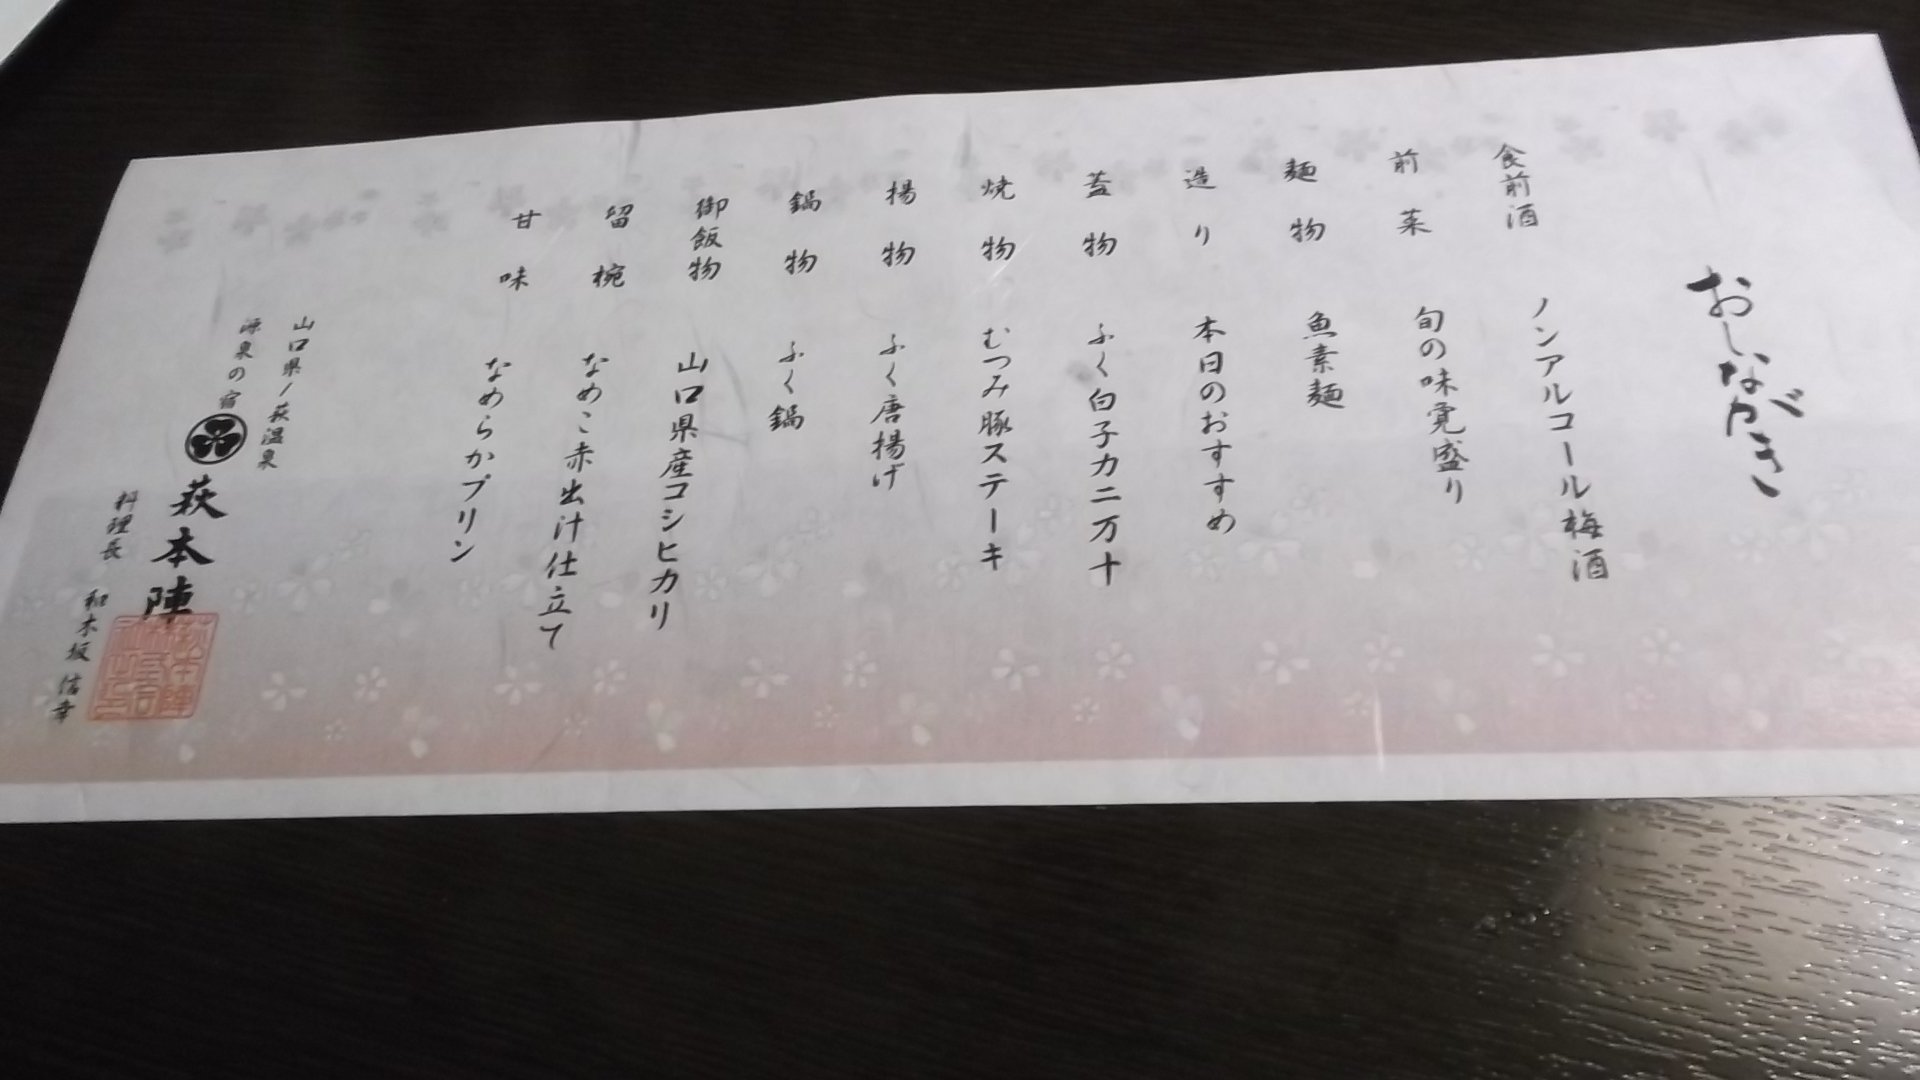 おしながき
食前酒 ノンアルコール梅酒
前菜 旬の味覚盛り
麺物 魚素麺
造り 本日のおすすめ
蓋物 ふく白子カニ万十
焼物 むつみ豚ステーキ
揚物 ふく唐揚げ
鍋物 ふく鍋
御飯物 山口県産コシヒカリ
留椀 なめこ赤出汁仕立て
甘味 なめらかプリン
山口県/萩温泉
源泉の宿
萩本陣
料理長 和木坂 信幸